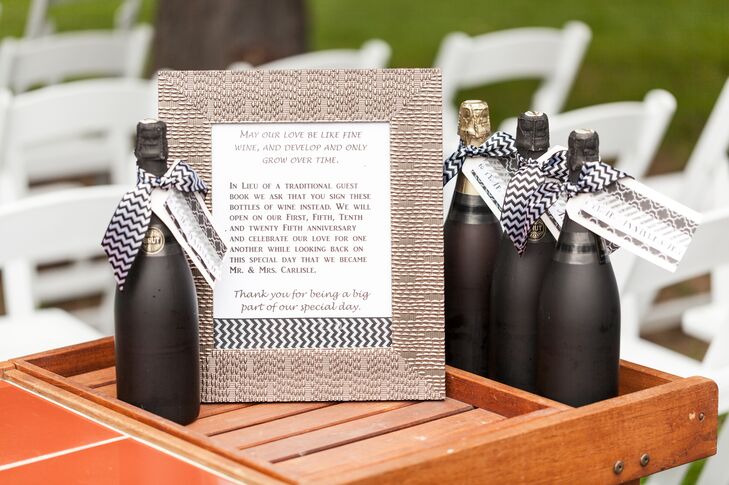 May our love be like fine
wine, and develop and only
grow over time.
In Lieu of a traditional guest
book we ask that you sign these
bottles of wine instead. We will
open on our First, Fifth, Tenth
and twenty Fifth anniversary
and celebrate our love for one
another while looking back on
this special day that we became
Mr. & Mrs. Carlisle.
Thank you for being a big
part of our special day.
BRUT